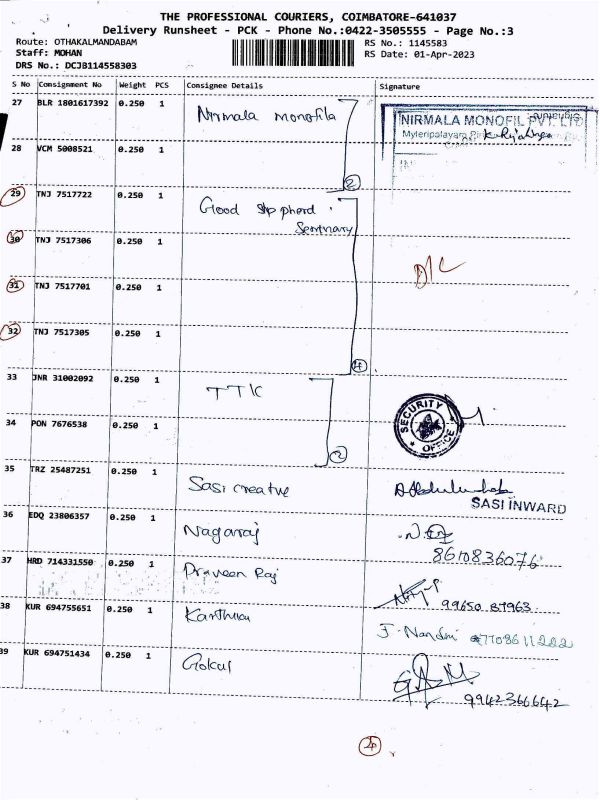 THE PROFESSIONAL COURIERS, COIMBATORE-641037
Delivery Runsheet - PCK - Phone No.:0422-3505555 - Page No.:3
Route: OTHAKALMANDABAM
Staff: MOHAN
DRS No.: DCJB114558303
RS No.: 1145583
RS Date: 01-Apr-2023
S No Consignment No Weight PCS Consignee Details Signature
27 BLR 1801617392 0.250 1 Nirmala monofila
NIRMALA MONOFIL PVT. LTD
28 VCM 5008521 0.250 1
2
29 TNJ 7517722 0.250 1 Good
30 TNJ 7517306 0.250 1
31 TNJ 7517701 0.250 1
32 TNJ 7517305 0.250 1
4
33 JNR 31002092 0.250 1 TTK
SECURITY OFFICE
34 PON 7676538 0.250 1
2
35 TRZ 25487251 0.250 1 Sasi creative
SASI INWARD
36 EDQ 23806357 0.250 1 Nagaraj
8610836076
37 HRD 714331550 0.250 1 Praveen Raj
99650 87963
38 KUR 694755651 0.250 1
J. Nandni 7708611222
39 KUR 694751434 0.250 1 Gokul
9942366642